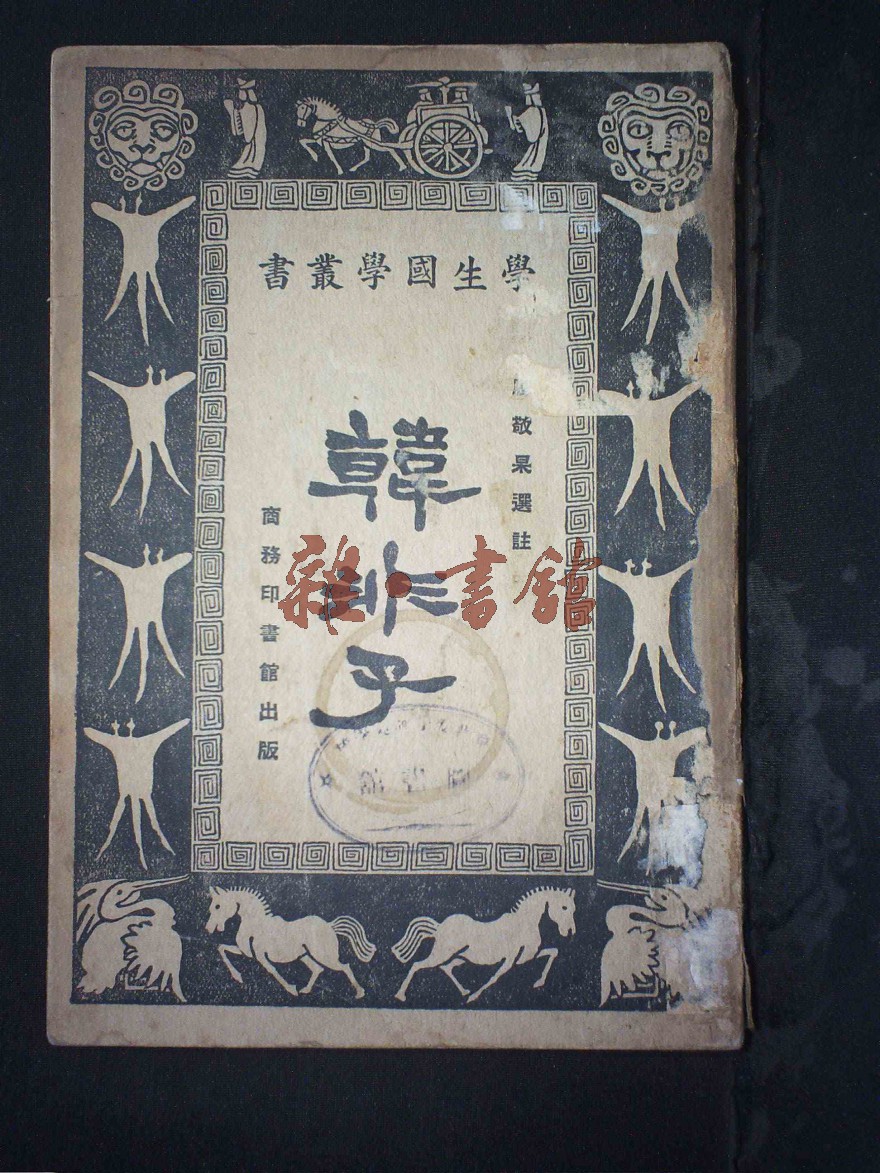 學生國學叢書
敬杲選註
韓非子
商務印書館出版
雜·書館